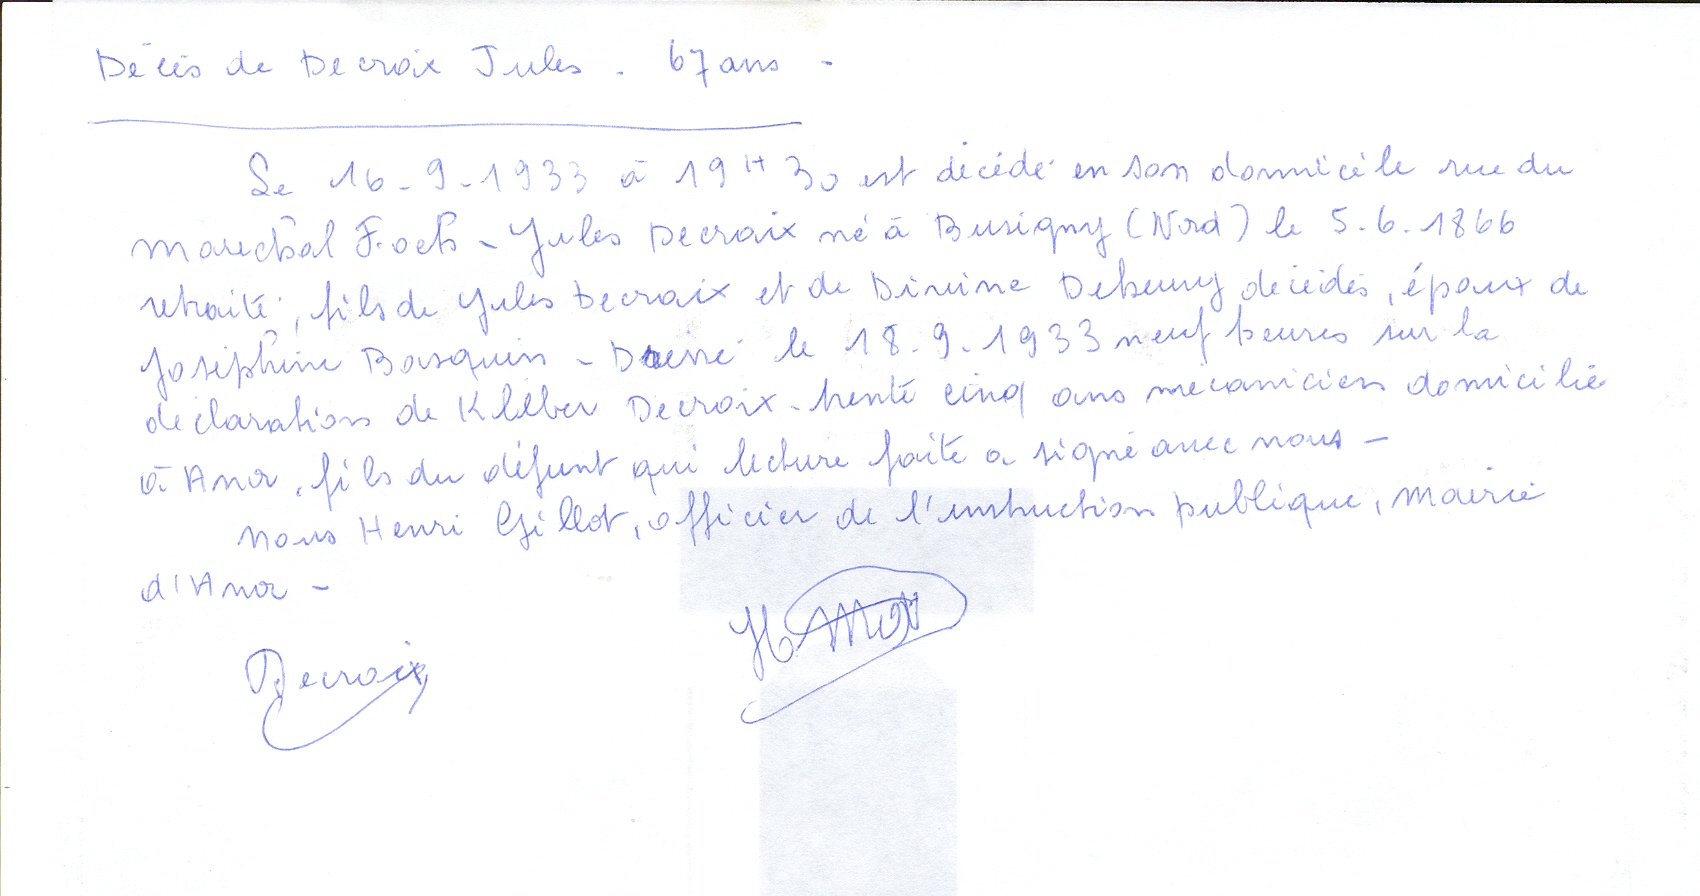 Décès de Decroix Jules - 67 ans -
Le 16-9-1933 à 19H30 est décédé en son domicile rue du
Marechal Foch - Jules Decroix né à Busigny (Nord) le 5.6.1866
retraité, fils de Jules Decroix et de Divine Dehenny décédés, époux de
Joséphine Basquin - Dressé le 18.9.1933 neuf heures sur la
déclaration de Kléber Decroix - trente cinq ans mécanicien domicilié
à Anor, fils du défunt qui lecture faite a signé avec nous -
Nous Henri Gillot, officier de l'instruction publique, Mairie
d'Anor -
Decroix